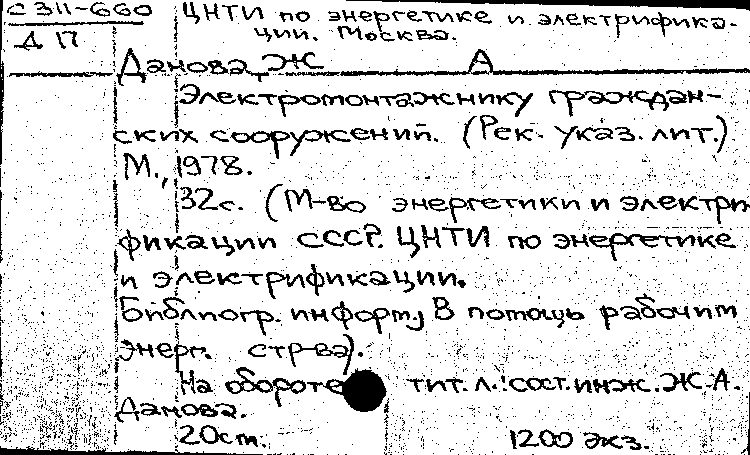 С 311-660 ЦНТИ по энергетике и электрифика-
Д П ции. Москва.
Данова, Ж А
Электромонтажнику граждан-
ских сооружений. (Рек. указ. лит.)
М., 1978.
32с. (М-во энергетики и электри
фикации СССР. ЦНТИ по энергетике
и электрификации.
Библиогр. информ., В помощь рабочим
энерг. стр-ва).
На обороте тит. л.: сост. инж. Ж. А.
Данова.
20см. 1200 экз.